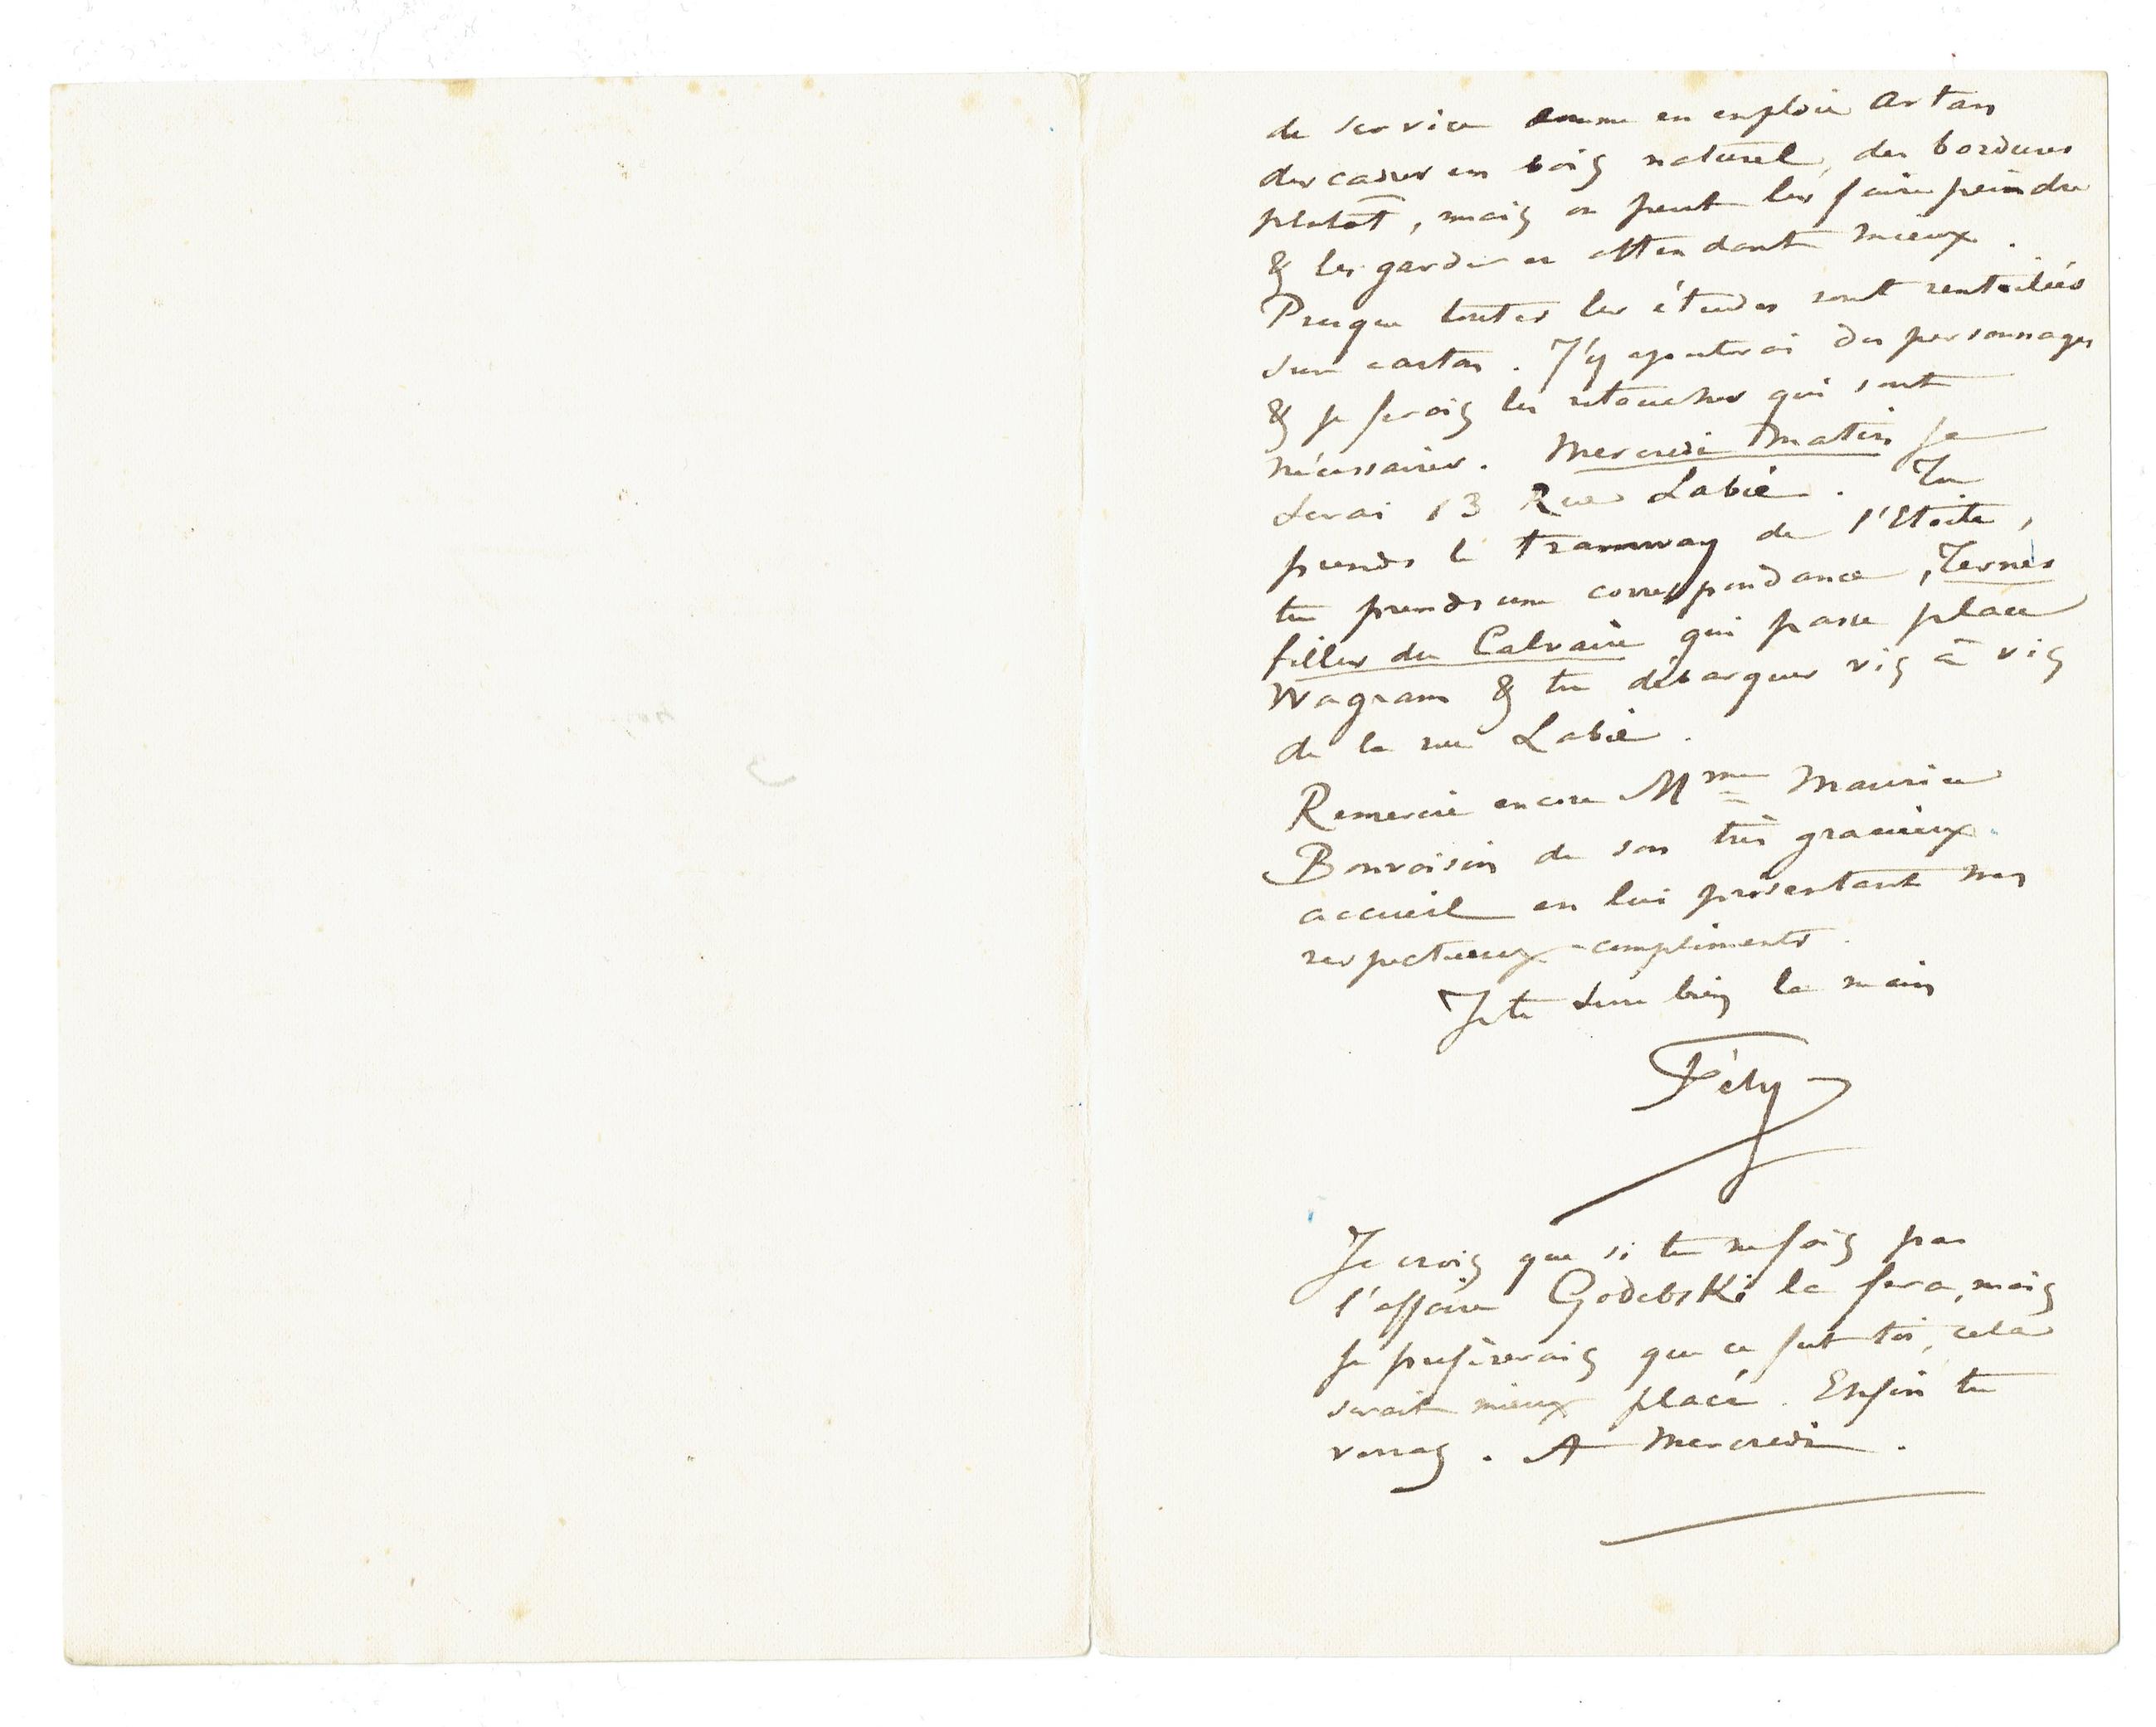 de service comme en emploie Artan
des cadres en bois naturel, des bordures
plutôt, mais on peut les faire peindre
& les garder en attendant mieux.
Presque toutes les études sont rentoilées
sur carton. J'y ajouterai des personnages
& je ferais les retouches qui sont
nécessaires. Mercredi matin je
serai 13 Rue Labie. Tu
prends le tramway de l'Etoile,
tu prends une correspondance, Ternes
filles du Calvaire qui passe place
Wagram & tu débarques vis à vis
de la rue Labie.
Remercie encore Mme Maurice
Bonvoisin de son très gracieux
accueil en lui présentant mes
respectueux compliments.
Je te serre bien la main
Fély
Je crois que si tu ne fais pas
l'affaire Godebski la fera, mais
je préfèrerais que ce fut toi, cela
serait mieux placé. Enfin tu
verras. A Mercredi.